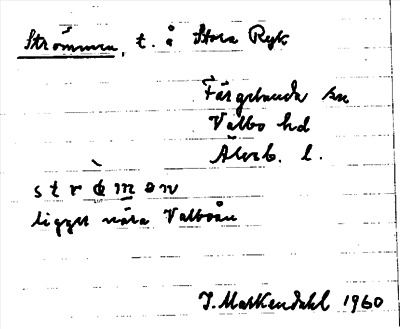 Strömmen, t. å Stora Ryk
Färgelanda sn
Valbo hd
Älvsb. l.
strömən
ligger nära Valboån
J. Markendahl 1960